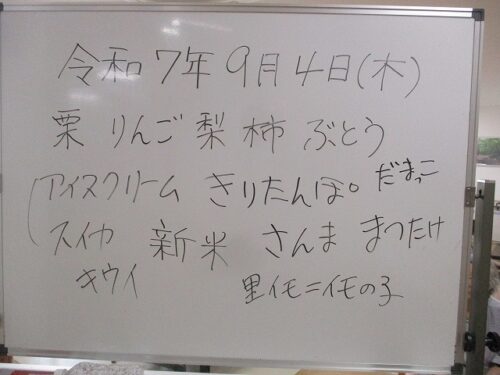 令和7年9月4日(木)
栗 りんご 梨 柿 ぶどう
アイスクリーム きりたんぽ だまっこ
スイカ 新米 さんま まつたけ
キウイ 里イモ=イモの子